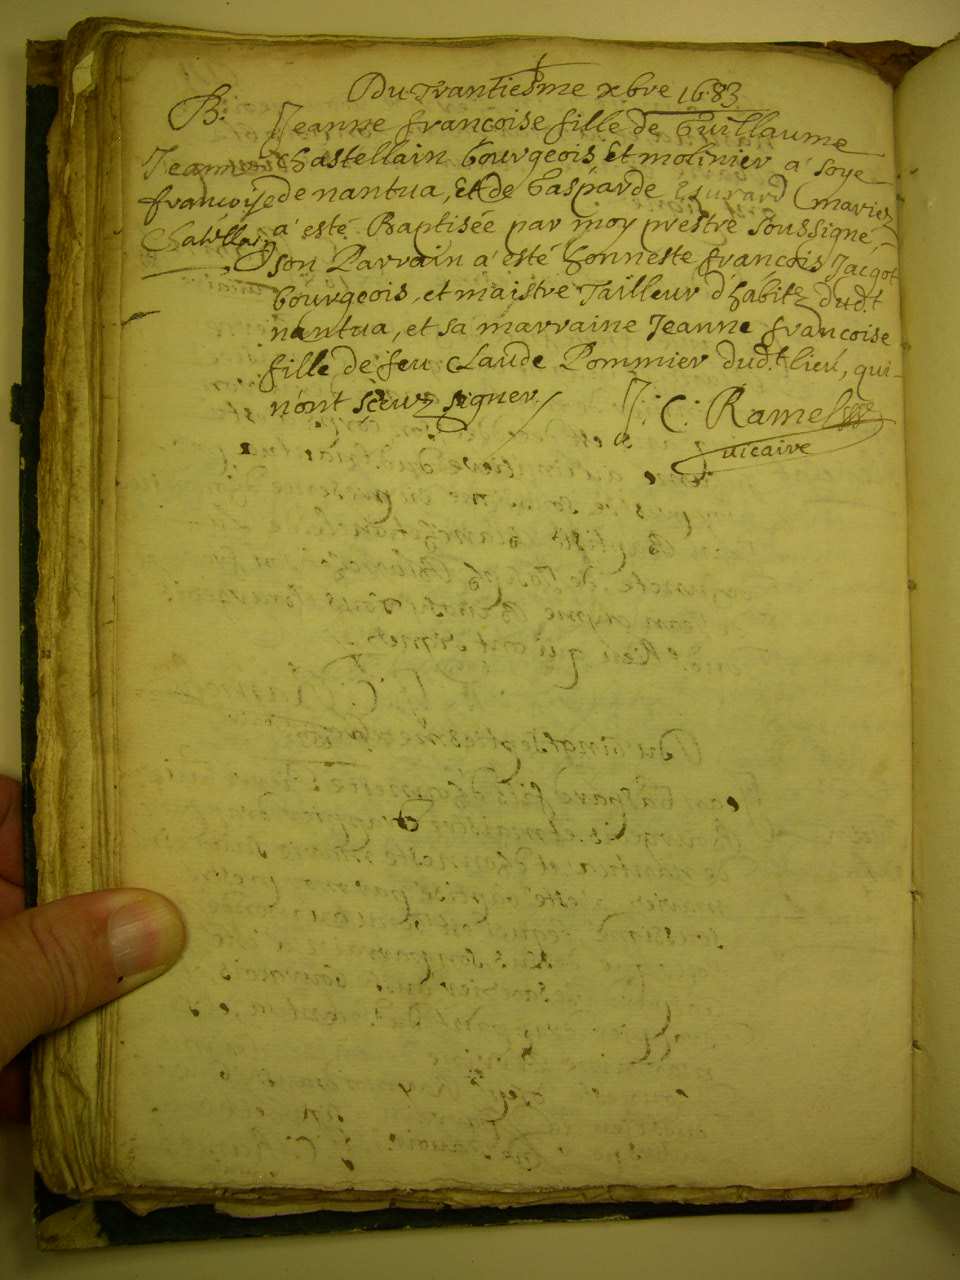 Du trantiesme xbre 1683
B. Jeanne francoise fille de Guillaume
Jeanne chastellain bourgeois et molinier a soye
francoise de nantua, et de Gasparde Esurard mariez
Chatellain a esté Baptisée par moy prestre soussigné,
son Parrain a esté honneste francois Jacqot
bourgeois, et maistre Tailleur d'habitz dudt
nantua, et sa marraine Jeanne francoise
fille de feu Claude Pommier dudt lieu, qui
n'ont sceuz signer /. J: C: Ramel
vicaire